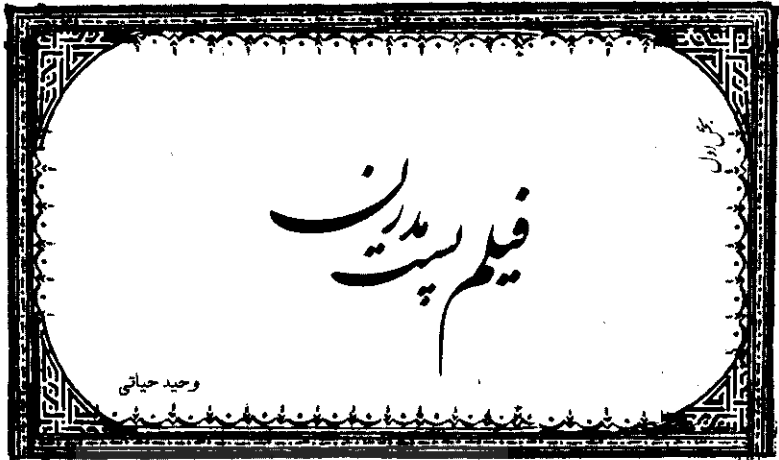 بخش اول
فیلم پست مدرن
وحید حیاتی